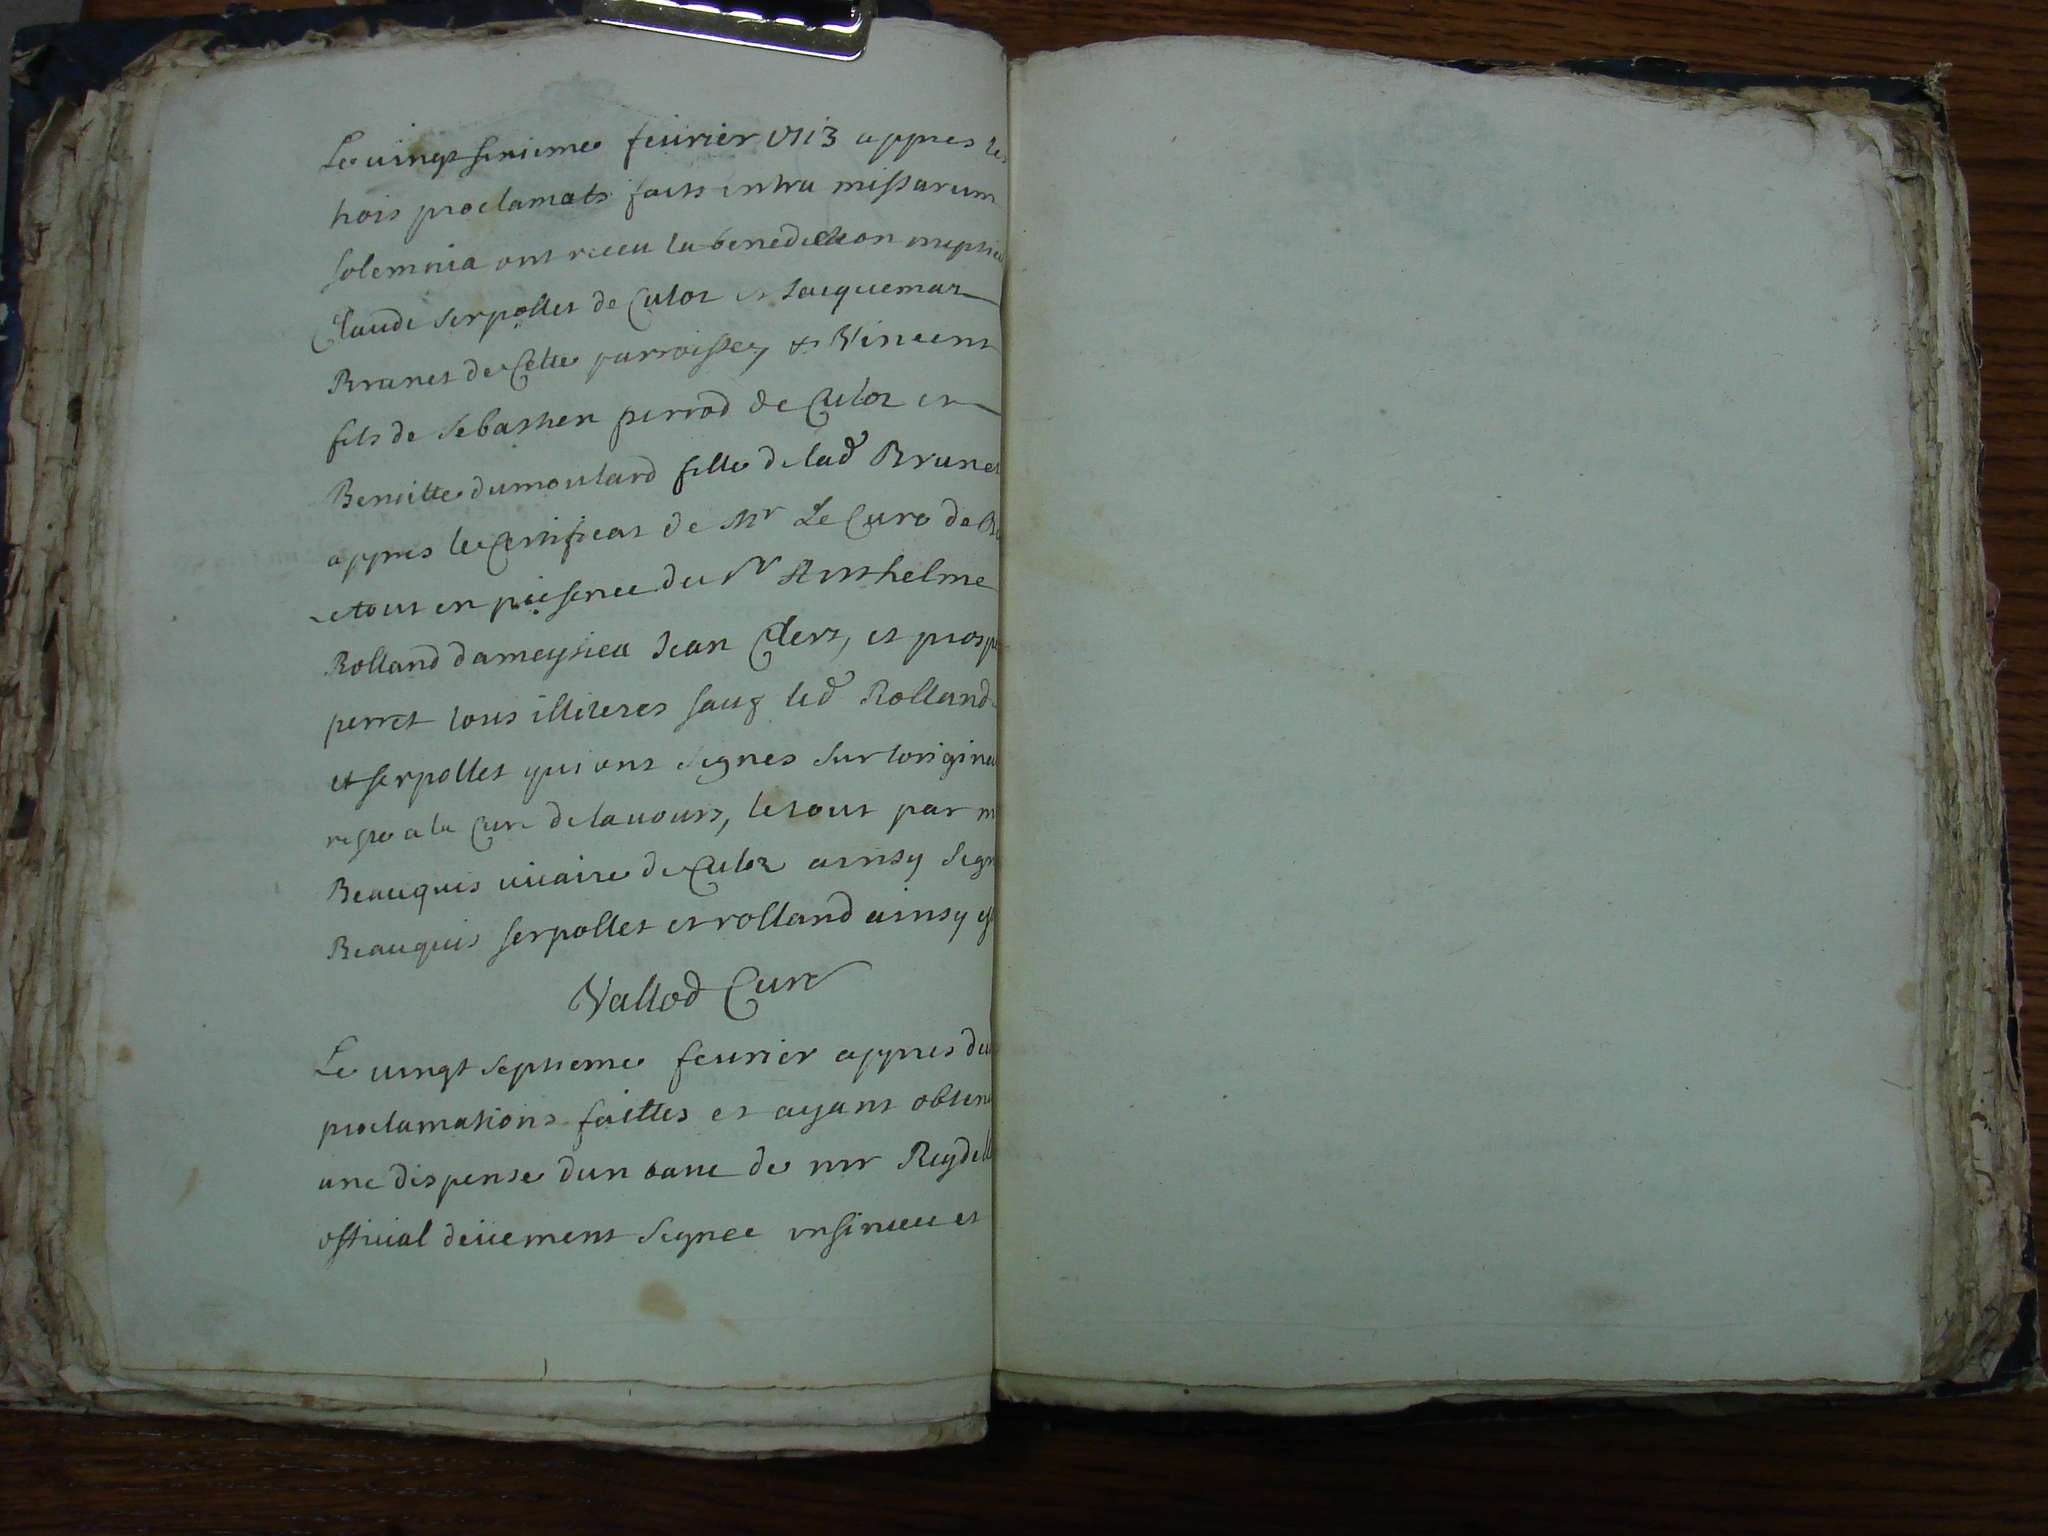 Le vingt sixieme feurier 1713 appres les
trois proclamats faits intra missarum
solemnia ont receu la benediction nuptia
Claude serpollet de Culoz et Jacquemaz
Brunet de Cette parroisse, et Vincent
fils de sebastien perrod de Culoz et
Benoitte dumoulard fille de lad Brunet
appres le Certificat de Mr Le Cure de
le tout en presence du Sr Anthelme
Rolland dameysieu Jean Clerz, et prospe
perret tous illiteres sauf led Rolland
et serpollet qui ont signes sur lorigina
reste a la Cure de lauours, le tout par m
Beauquis uicaire de Culoz ainsy sign
Beauquis serpollet et rolland ainsy
Vallod Cure
Le vingt septieme feurier appres deu
proclamations faittes et ayant obtenu
une dispense dun banc de mr Reydell
official deüement signee insinuee et